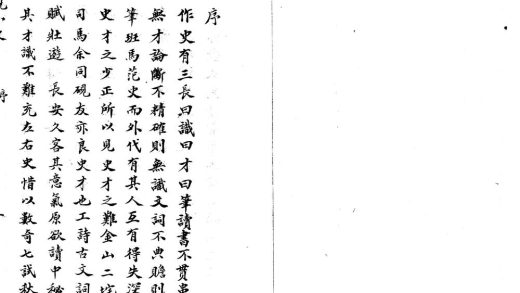 序
作史有三長曰識曰才曰筆讀書不貫串
無才論斷不精確則無識文詞不典贍則
筆班馬范史而外代有其人互有得失深
史才之少正所以見史才之難金山二垞
司馬余同硯友亦良史才也工詩古文詞
賦壯遊 長安久客其意氣原欲讀中秘
具才識不難充左右史惜以數奇七試秋
序